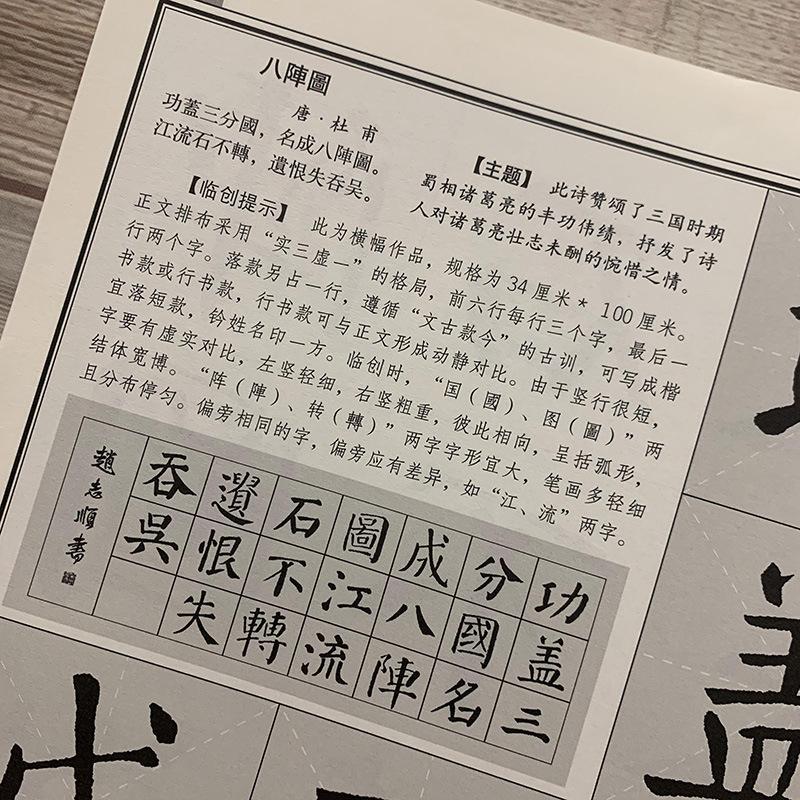 八陣圖
唐·杜 甫
功蓋三分國，名成八陣圖。
江流石不轉，遺恨失吞吴。
【主题】 此诗赞颂了三国时期
蜀相诸葛亮的丰功伟绩，抒发了诗
人对诸葛亮壮志未酬的惋惜之情。
【临创提示】 此为横幅作品，规格为34厘米* 100厘米。
正文排布采用“实三虚一”的格局，前六行每行三个字，最后一
行两个字。落款另占一行，遵循“文古款今”的古训，可写成楷
书款或行书款，行书款可与正文形成动静对比。由于竖行很短，
宜落短款，钤姓名印一方。临创时，“国（國）、图（圖）”两
字要有虚实对比，左竖轻细，右竖粗重，彼此相向，呈括弧形，
结体宽博。“阵（陣）、转（轉）”两字字形宜大，笔画多轻细
且分布停匀。偏旁相同的字，偏旁应有差异，如“江、流”两字。
功盖三
分國名
成八陣
圖江流
石不轉
遺恨失
吞吳
趙志順書
盖